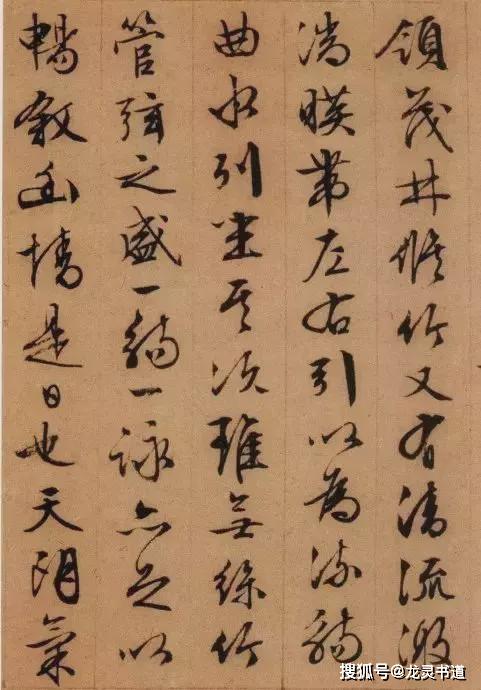 領茂林脩竹又有清流激
湍暎帶左右引以為流觴
曲水列坐其次雖無絲竹
管弦之盛一觴一詠亦足以
暢敘幽情是日也天朗氣
搜狐号@龙灵书道